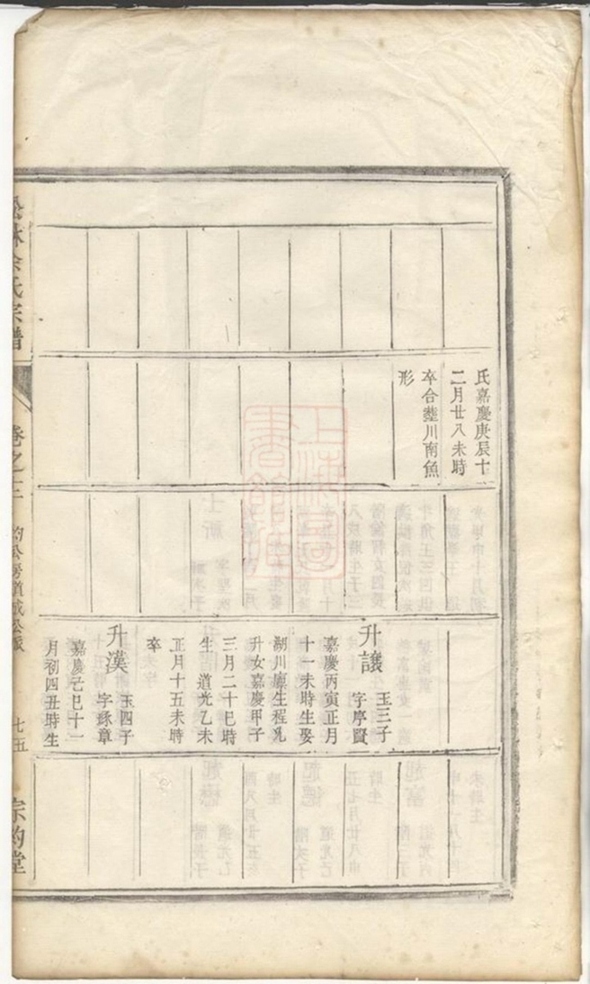 氏嘉慶庚辰十
二月廿八未時
卒合塟川南魚
形
升讓
玉三子
字序賢
嘉慶丙寅正月
十一未時生娶
湖川廪生程鳬
升女嘉慶甲子
三月二十巳時
生 道光乙未
正月十五未時
卒
升漢
玉四子
字錦章
嘉慶己巳十一
月初四丑時生
林余氏宗譜
卷之十三
的公房道成公派
七五
宗的堂
上海圖書館藏